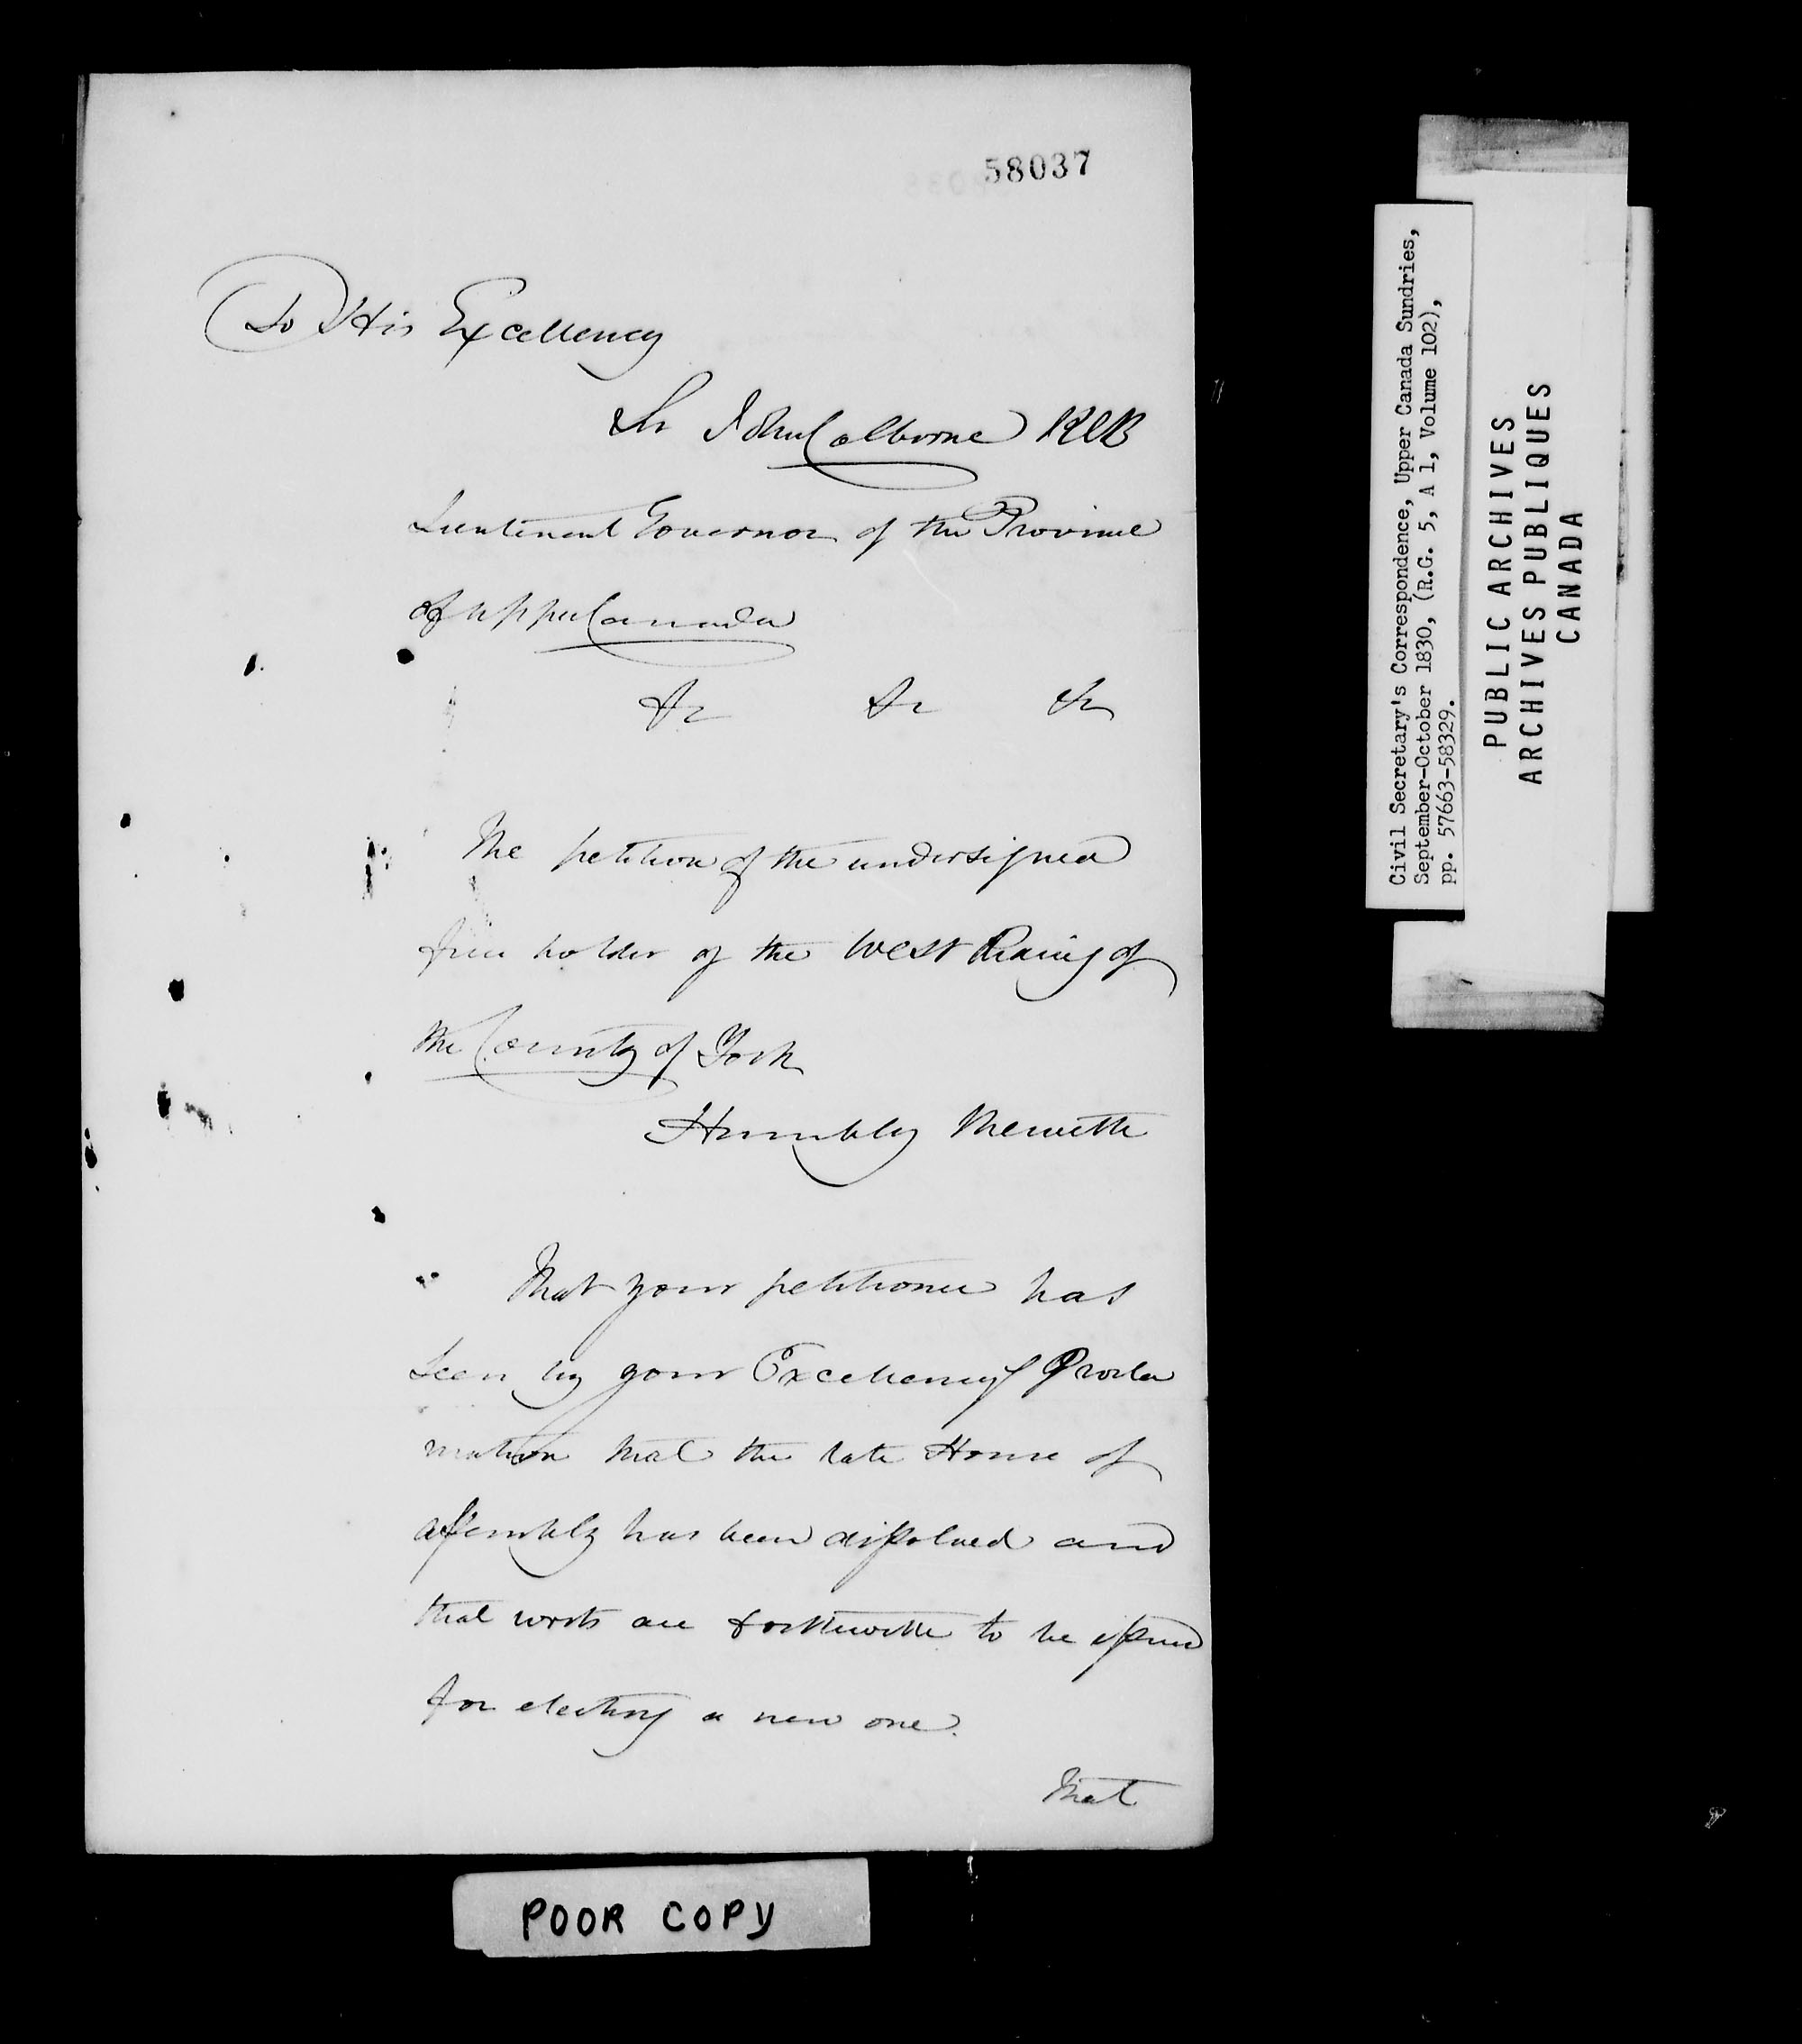 58037
To His Excellency
Sir John Colborne KCB
Lieutenant Governor of the Province
of Upper Canada
&c &c &c
The petition of the undersigned
free holder of the West Riding of
the County of York
Humbly Sheweth
That your petitioner has
seen by your Excellency's Procla
mation that the late House of
assembly has been dissolved and
that writs are forthwith to be issued
for electing a new one.
That
POOR COPY
Civil Secretary's Correspondence, Upper Canada Sundries,
September-October 1830, (R.G. 5, A 1, Volume 102),
pp. 57663-58329.
PUBLIC ARCHIVES
ARCHIVES PUBLIQUES
CANADA